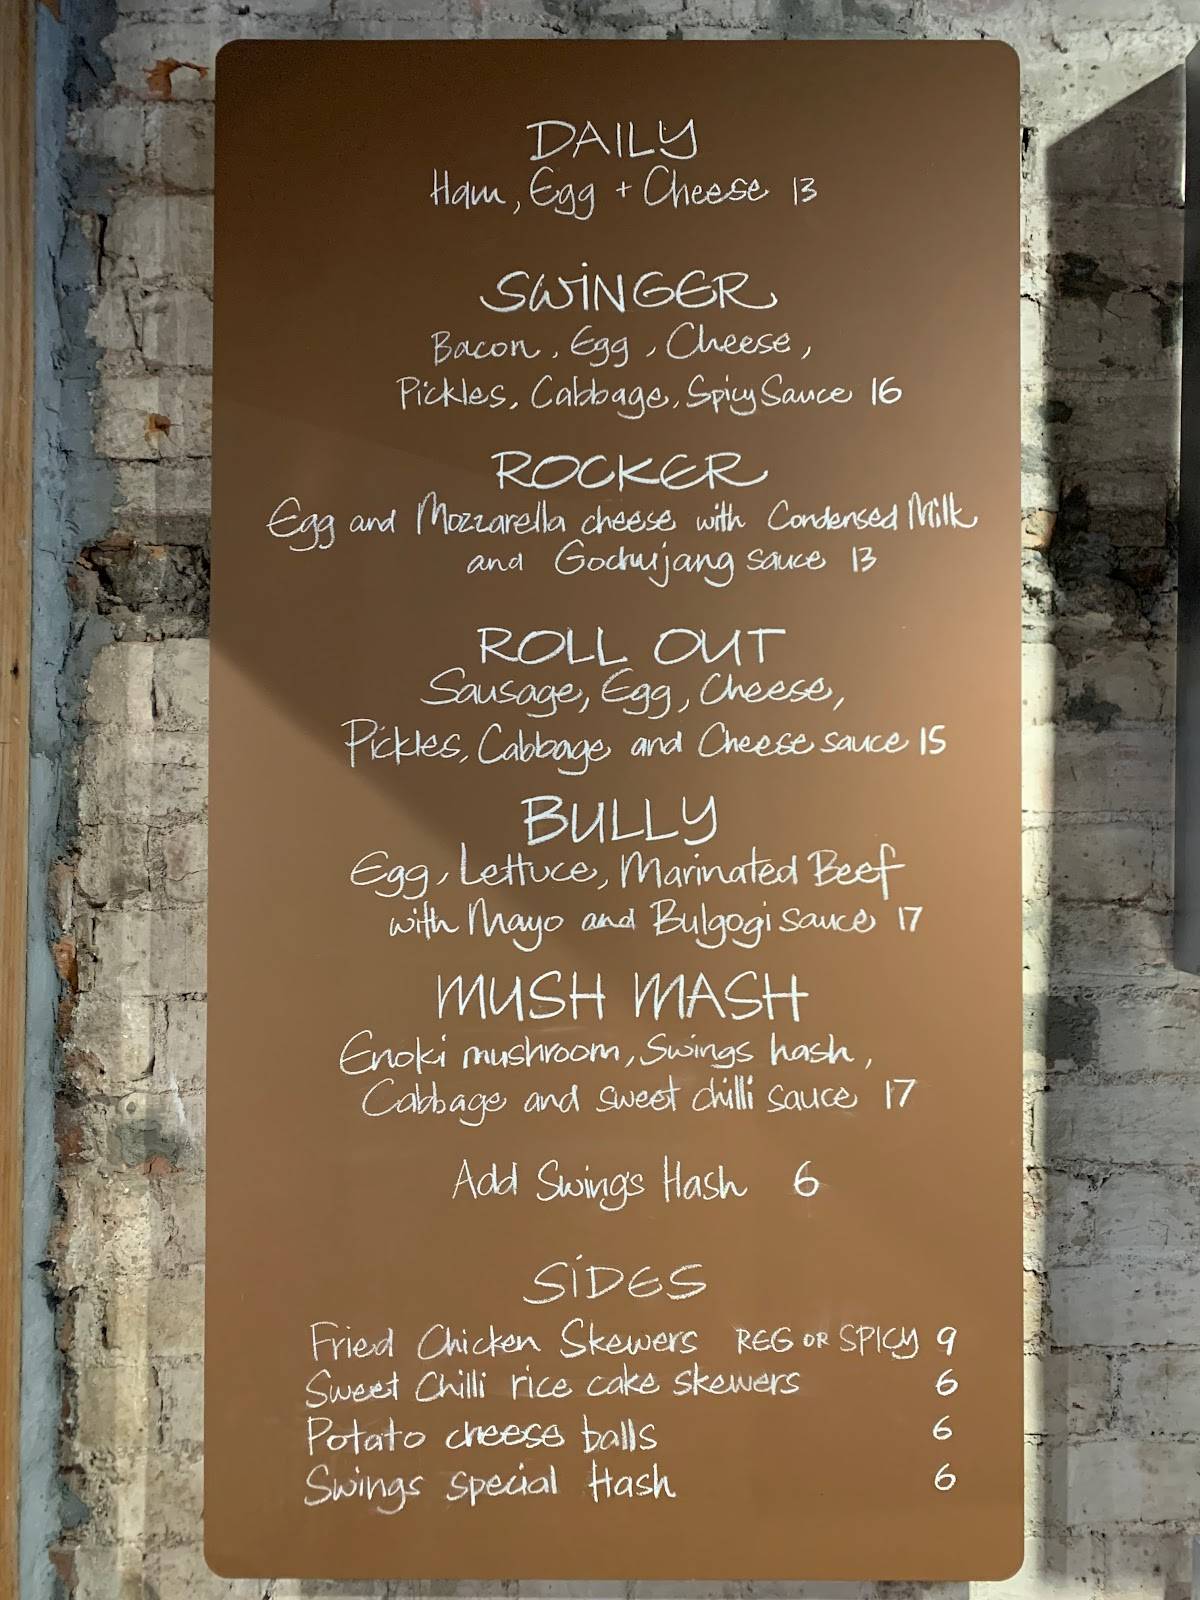 DAILY
Ham, Egg + Cheese 13
SWINGER
Bacon, Egg, Cheese,
Pickles, Cabbage, Spicy Sauce 16
ROCKER
Egg and Mozzarella cheese with Condensed Milk
and Gochujang sauce 13
ROLL OUT
Sausage, Egg, Cheese,
Pickles, Cabbage and Cheese sauce 15
BULLY
Egg, Lettuce, Marinated Beef
with Mayo and Bulgogi sauce 17
MUSH MASH
Enoki mushroom, Swings hash,
Cabbage and sweet chilli sauce 17
Add Swings Hash 6
SIDES
Fried Chicken Skewers REG OR SPICY 9
Sweet Chilli rice cake skewers 6
Potato cheese balls 6
Swings special Hash 6